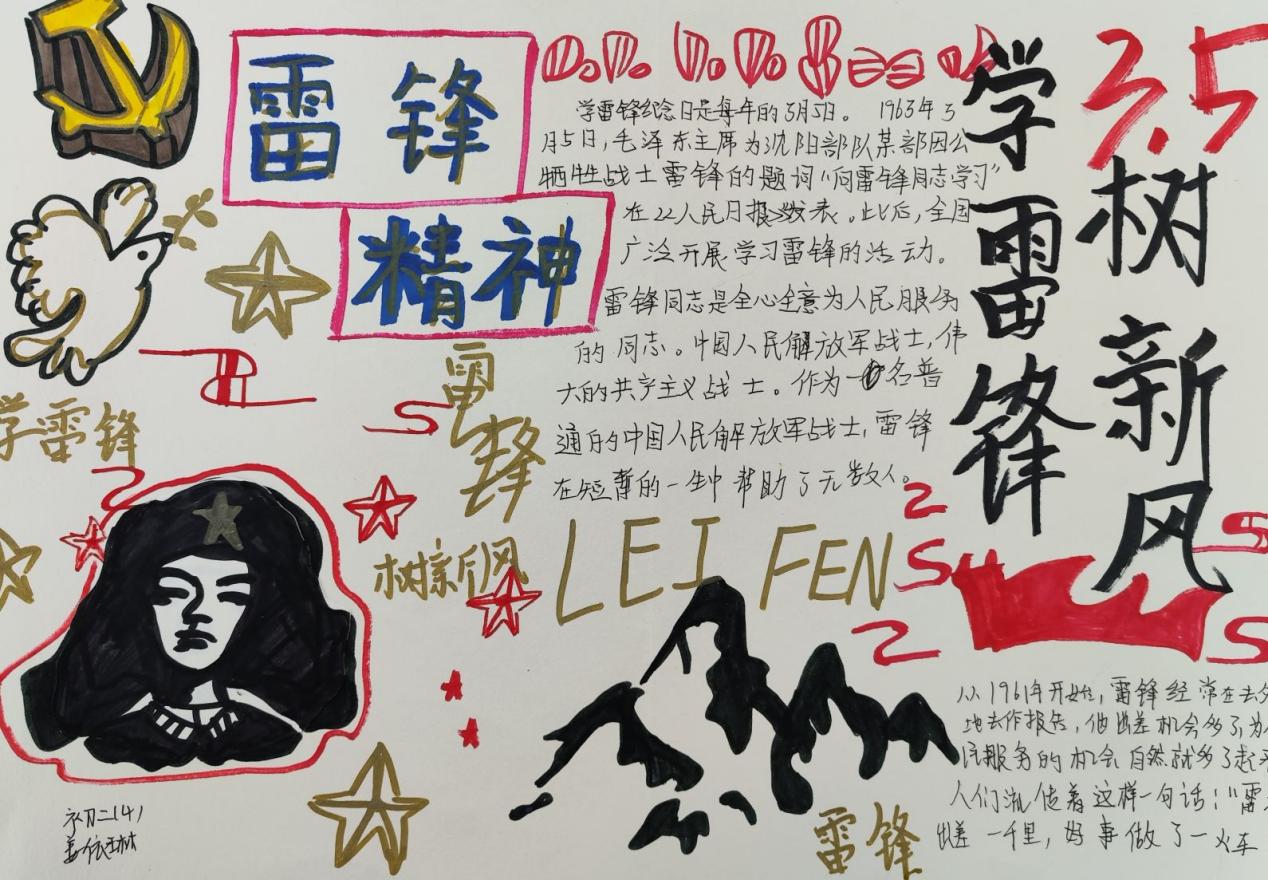 雷锋
精神
学雷锋纪念日是每年的3月5日。 1963年3
月5日，毛泽东主席为沈阳部队某部因公
牺牲战士雷锋的题词“向雷锋同志学习”
在22人民日报》发表。此后，全国
广泛开展学习雷锋的活动。
雷锋同志是全心全意为人民服务
的同志。中国人民解放军战士，伟
大的共产主义战士。作为一名普
通的中国人民解放军战士，雷锋
在短暂的一生中帮助了无数人。
3.5
学雷锋
树新风
学雷锋
雷锋
树新风
LEI FEN
从1961年开始，雷锋经常在去外
地去作报告，他出差机会多了，为
民服务的机会自然就多了起
人们流传着这样一句话：“雷
出差一千里，好事做了一火车
雷锋
初二(4)